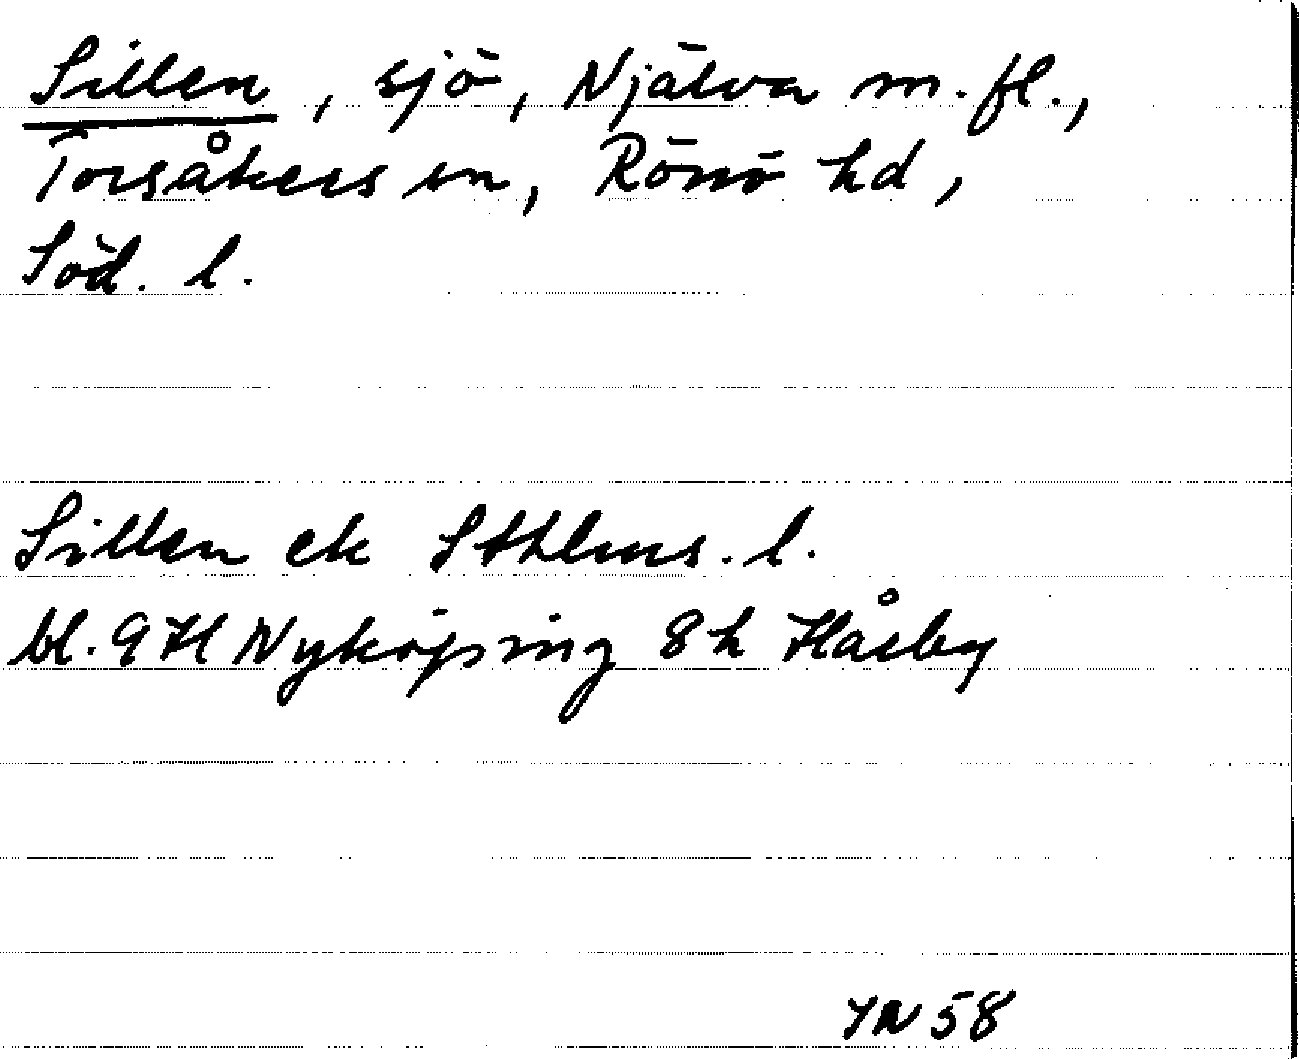 Sillen, sjö, Njälva m. fl.,
Torsåkers sn, Rönö hd,
Söd. l.
Sillen ek Sthlms. l.
bl. 9H Nyköping 8h Håsby
YN 58